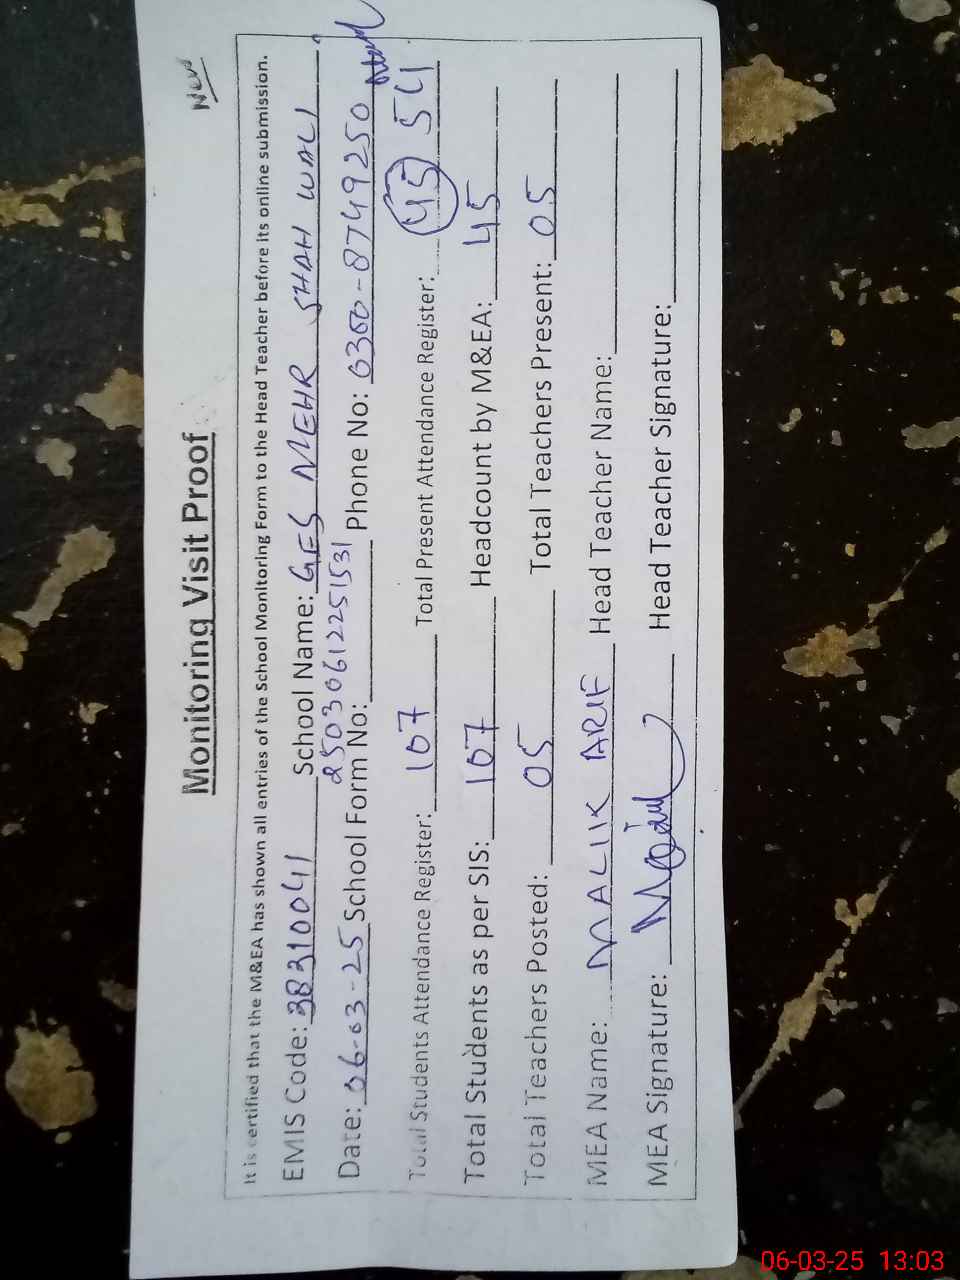 New
Monitoring Visit Proof
It is certified that the M&EA has shown all entries of the School Monitoring Form to the Head Teacher before its online submission.
EMIS Code: 38310041 School Name: GES MEHR SHAH WALI
Date: 06-03-25 School Form No: 25030612251531 Phone No: 0300-8749250
Total Students Attendance Register: 107 Total Present Attendance Register: 45 54
Total Students as per SIS: 107 Headcount by M&EA: 45
Total Teachers Posted: 05 Total Teachers Present: 05
MEA Name: MALIK ARIF Head Teacher Name:
MEA Signature: Head Teacher Signature:
06-03-25 13:03